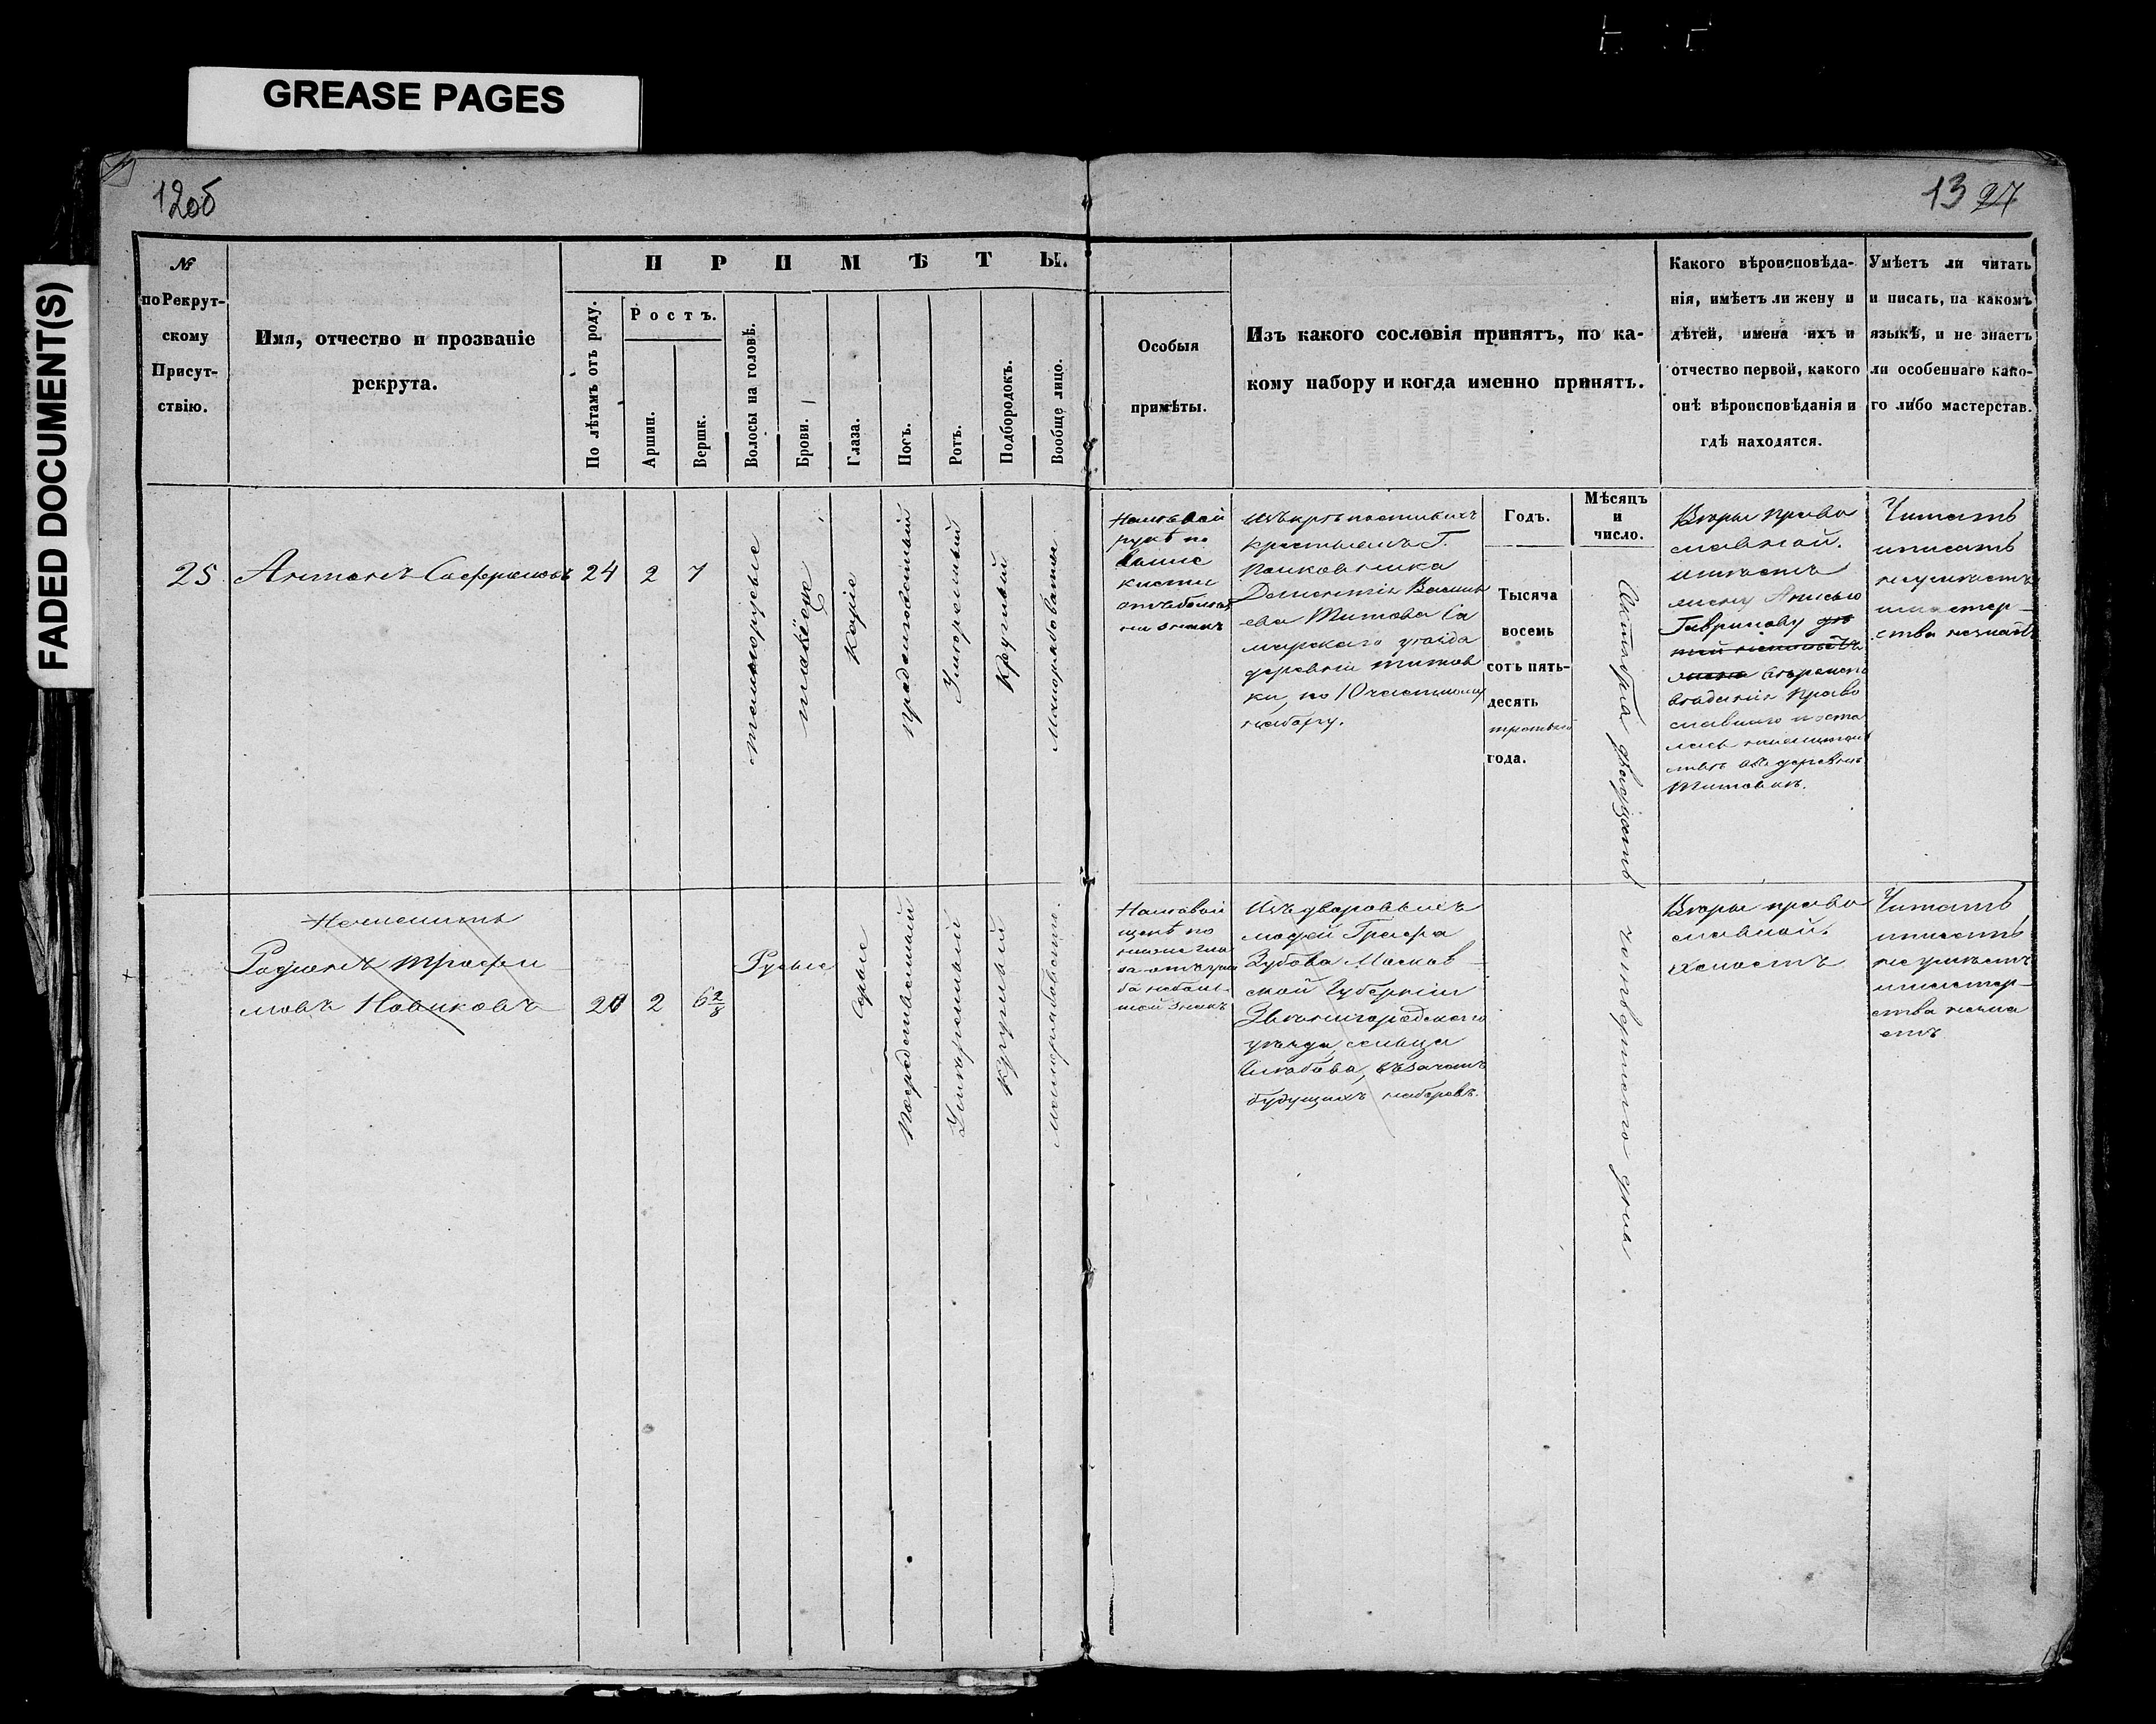 GREASE PAGES
FADED DOCUMENT(S)
12об
13 27
№
по Рекрут-
скому
Присут-
ствію.
Имя, отчество и прозваніе
рекрута.
П Р И М Ѣ Т Ы.
По лѣтамъ отъ роду.
Ростъ.
Аршин.
Вершк.
Волосы на головѣ.
Брови.
Глаза.
Носъ.
Ротъ.
Подбородокъ.
Вообще лицо.
Особыя
примѣты.
Изъ какого сословія принятъ, по ка-
кому набору и когда именно принятъ.
Какого вѣроисповѣда-
нія, имѣетъ ли жену и
дѣтей, имена ихъ и
отчество первой, какого
онѣ вѣроисповѣданія и
гдѣ находятся.
Умѣетъ ли читать
и писать, на какомъ
языкѣ, и не знаетъ
ли особеннаго како-
го либо мастерства.
25
Антонъ Сафроновъ
24
2
7
темнорусые
такёже
Каріе
продолговатый
Умеренный
Круглый
Малорябоватое
На левой
рукѣ по
выше
кисти
знакъ
Изъ крѣпостныхъ
крестьянъ Г.
Полковника
Дементія Василь
ева Титова Са
марскаго уезда
деревни Титов
ки, по 10 частному
набору.
Годъ.
Мѣсяцъ
и
число.
Тысяча
восемь
сотъ пять-
десять
третьяго
года.
Октября двадцать четвертаго дня
Вѣры право
славной.
имѣетъ
жену Анисью
Гаврилову
православнаго и оста
лась
въ деревнѣ
Титовкѣ.
Читать
и писать
не умѣетъ
и мастер-
ства незнаетъ
Родионъ Трофи
мовъ Новиковъ
20
2
6 2/8
Русые
Серые
Посредственный
Умеренный
Круглый
малорябоватое.
На левой
щекѣ по
ниже гла
за
небол
шой знакъ
Изъ дворовыхъ
людей Графа
Зубова Москов-
ской Губерніи
Звенигородскаго
уезда, сельца
въ зачетъ
будущихъ наборовъ.
Вѣры право
славной.
холостъ
Читать
и писать
не умѣетъ
и мастер-
ства незна
етъ